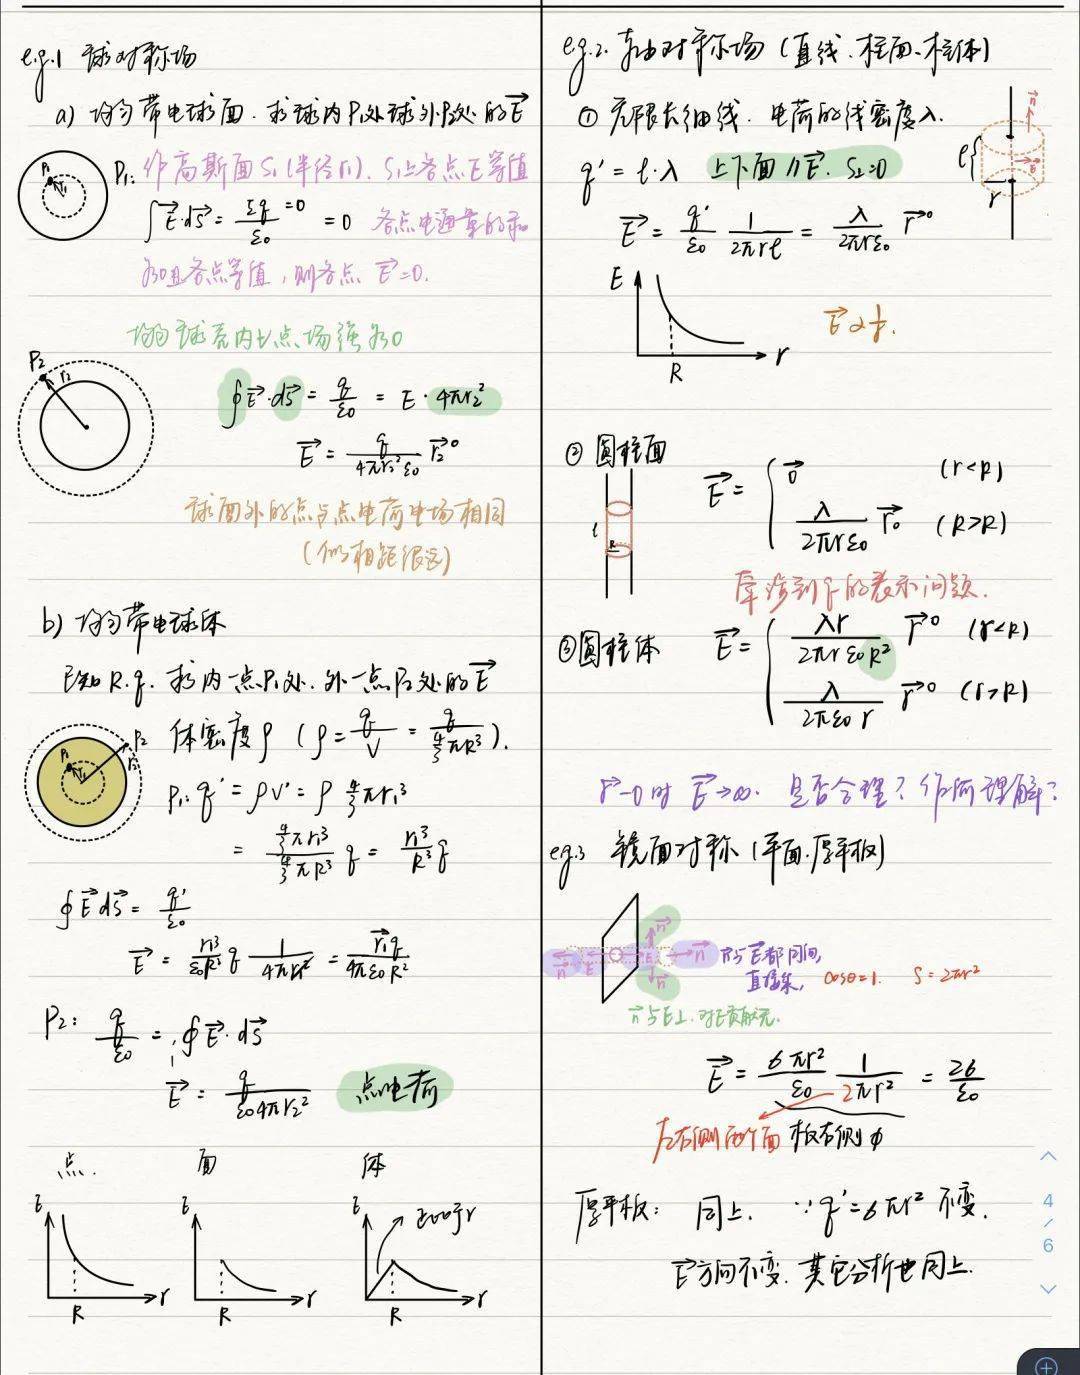 e.g.1 球对称场
a) 均匀带电球面.求球内P₁处球外P₂处的E⃗
P₁
r₁
P₁: 作高斯面S₁(半径r₁). S₁上各点E等值
∫E⃗·dS⃗ = Σq/ε₀ =0 = 0 各点电通量的和
为0且各点等值,则各点 E⃗=0.
均匀球壳内七点场强为0
P₂
r₂
∮E⃗·dS⃗ = q/ε₀ = E·4πr₂²
E⃗ = q/4πr₂²ε₀ r⃗₂⁰
球面外的点与点电荷电场相同
(似相距很远)
b) 均匀带电球体
已知R.q. 求内一点P₁处.外一点P₂处的E⃗
P₁
r₁
P₂
r₂
体密度ρ (ρ = q/V = q/(4/3 πR³)).
P₁: q' = ρV' = ρ 4/3 πr₁³
= (4/3 πr₁³)/(4/3 πR³) q = r₁³/R³ q
∮E⃗dS⃗ = q'/ε₀
E⃗ = r₁³/ε₀R³ q 1/4πr₁² = r⃗₁q/4πε₀R²
P₂: q/ε₀ = ∮E⃗·dS⃗
E⃗ = q/ε₀4πr₂² 点电荷
点. 面 体
E R r
E R r
E R r 正比于r
e.g.2. 轴对称场 (直线.柱面.柱体)
① 无限长细线. 电荷的线密度λ.
q' = l·λ 上下面∥E⃗. S₂=0
E⃗ = q'/ε₀ 1/2πrl = λ/2πrε₀ r⃗⁰
l
r
n⃗
E
R
r
E⃗ ∝ 1/r.
② 圆柱面
l
R
E⃗ = { 0⃗ (r<R)
λ/2πrε₀ r⃗₀ (R>R)
牵涉到q的表示问题.
③圆柱体 E⃗ = { λr/2πrε₀R² r⃗⁰ (r<R)
λ/2πε₀r r⃗⁰ (r>R)
r→0时 E⃗→∞. 是否合理?作何理解?
eg.3 镜面对称(平面.厚平板)
n⃗ E E n⃗
n⃗
n⃗
n⃗与E⃗都同向,
直接乘, cosθ=1. S=2πr²
n⃗与E⊥.对E贡献无.
E⃗ = 6πr²/ε₀ 1/2πr² = 26/ε₀
左右侧两个面 板右侧ϕ
厚平板: 同上. ∵q'=6πr² 不变.
E⃗方向不变.其它分析也同上.
4
/
6